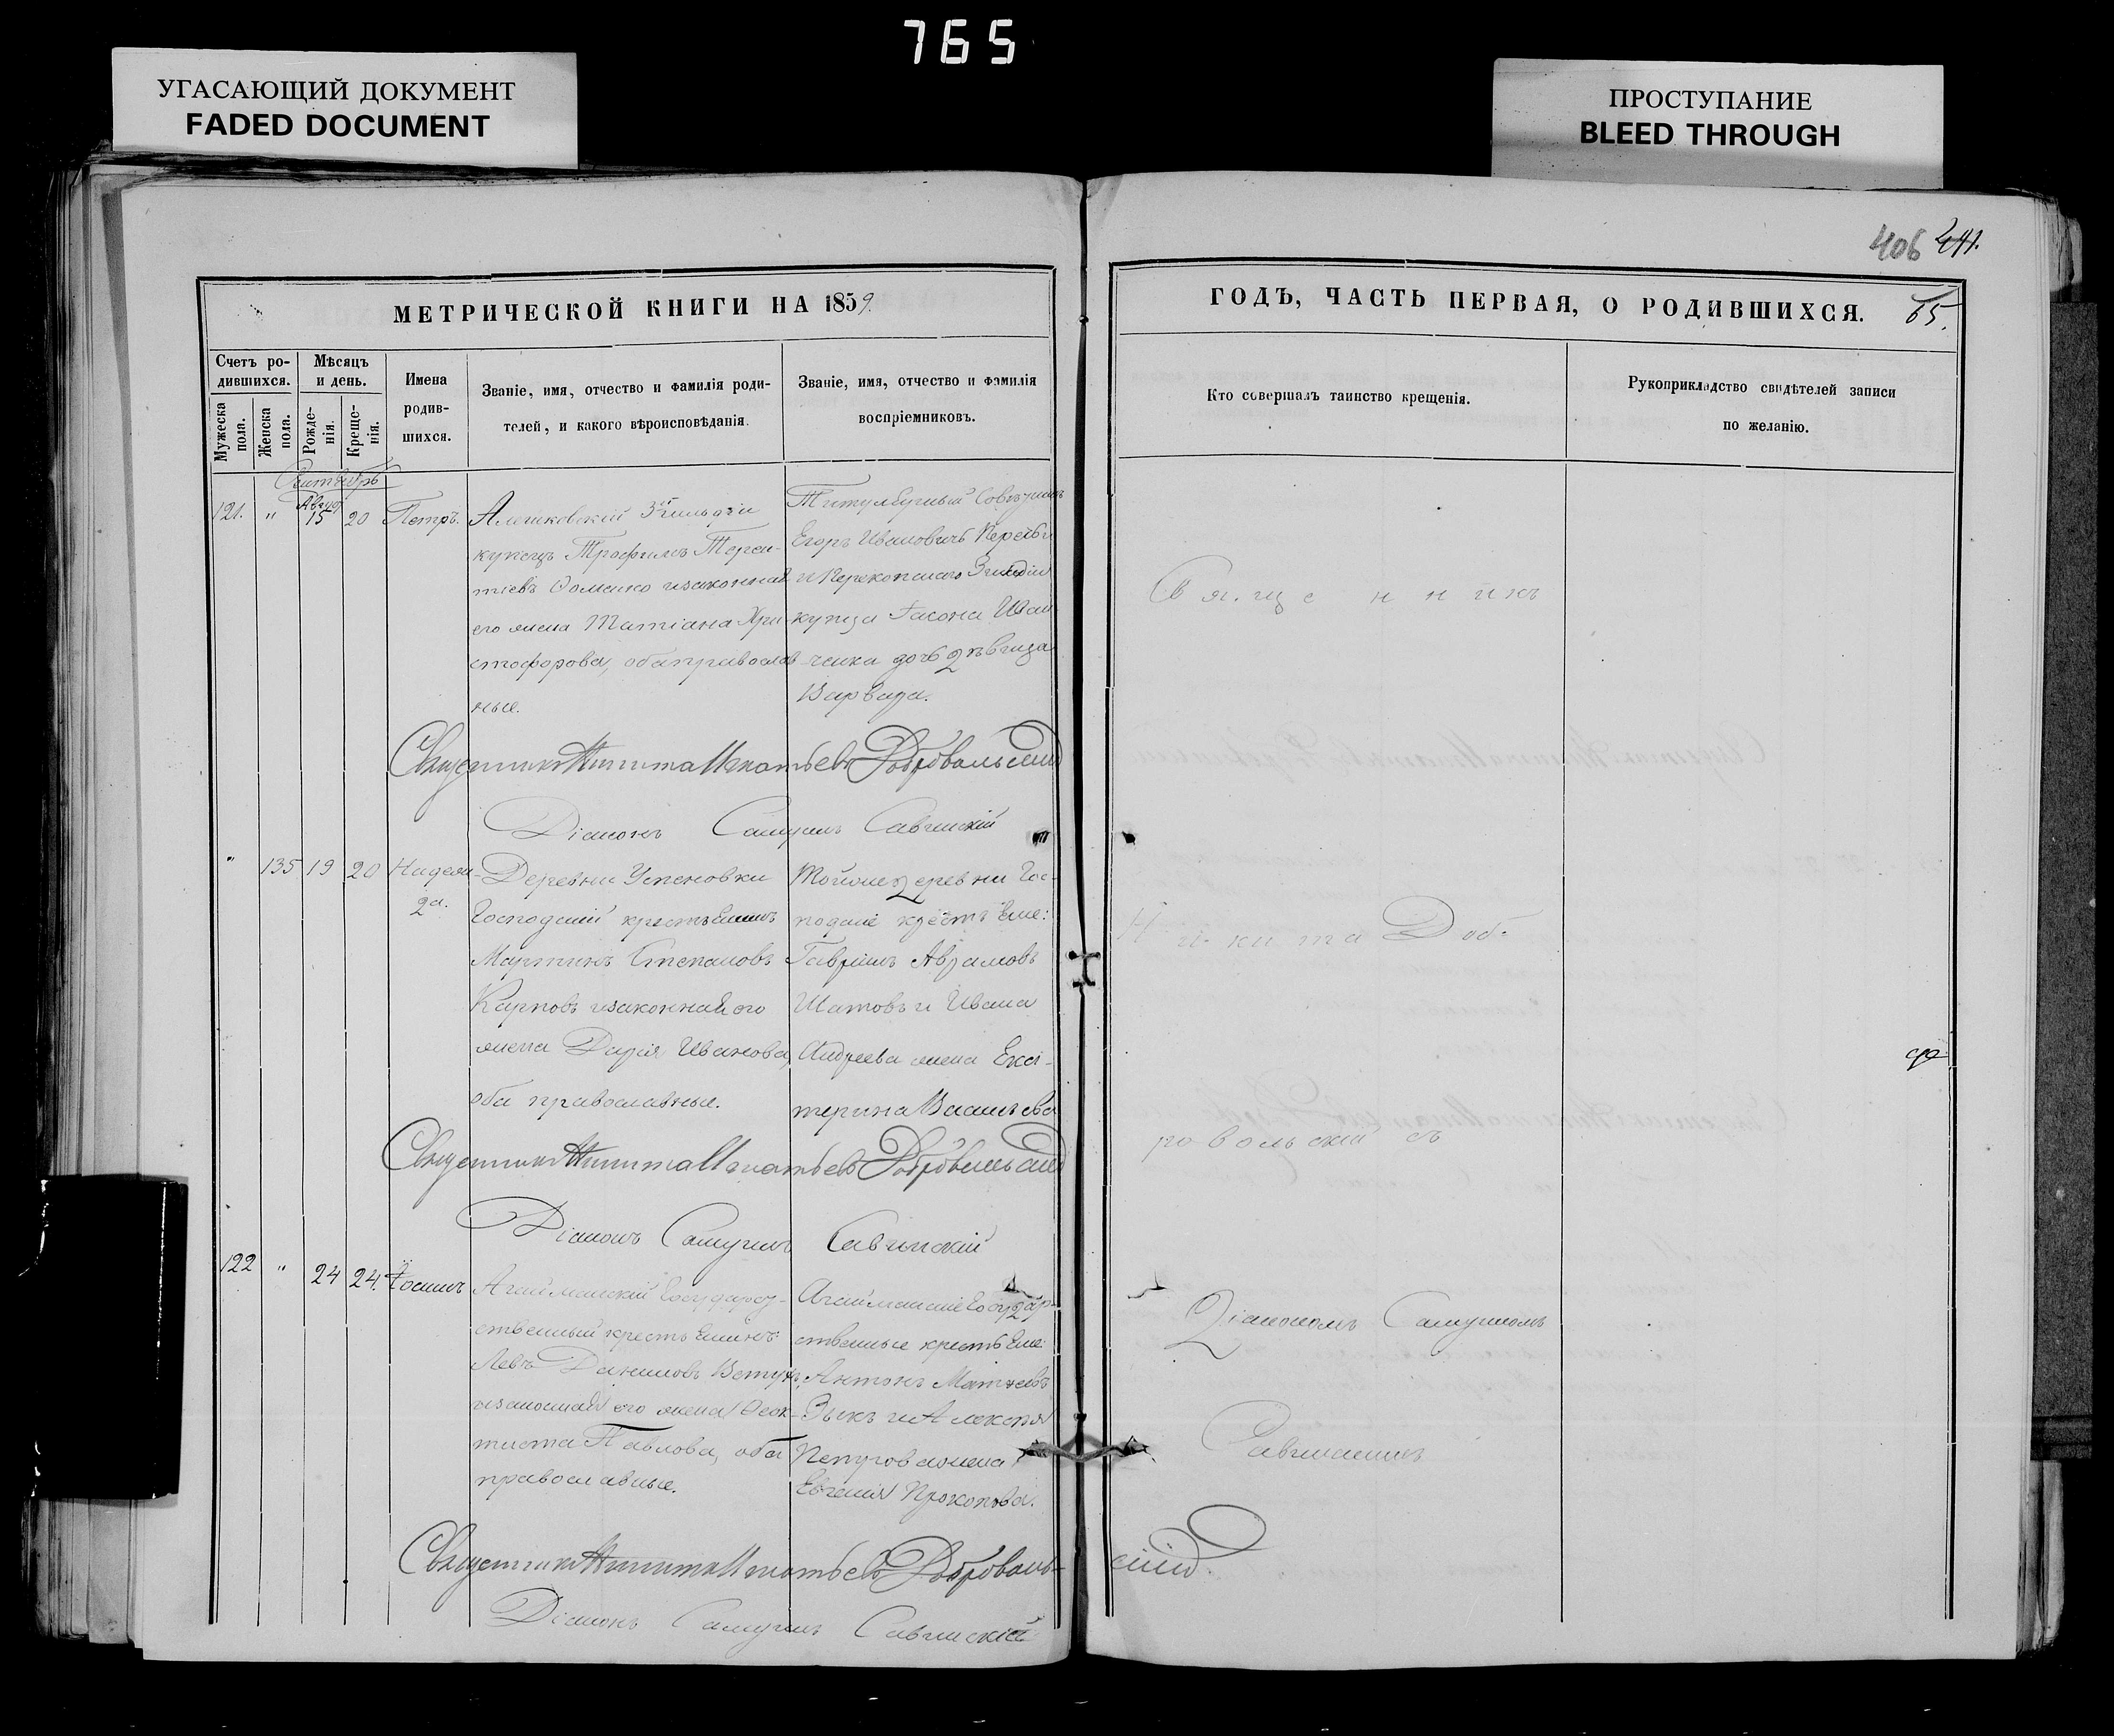 765
УГАСАЮЩИЙ ДОКУМЕНТ
FADED DOCUMENT
ПРОСТУПАНИЕ
BLEED THROUGH
406 241.
МЕТРИЧЕСКОЙ КНИГИ НА 1859.
ГОДЪ, ЧАСТЬ ПЕРВАЯ, О РОДИВШИХСЯ. 65.
Счетъ ро-
дившихся.
Мужеска пола.
Женска пола.
Мѣсяцъ
и день.
Рожде-
нія.
Креще-
нія.
Имена
родив-
шихся.
Званіе, имя, отчество и фамилія роди-
телей, и какого вѣроисповѣданія.
Званіе, имя, отчество и фамилія
воспріемниковъ.
Кто совершалъ таинство крещенія.
Рукоприкладство свидѣтелей записи
по желанію.
Сентябрь
121. " Авгус 15 20 Петръ.
Алешковскій 3й гильдіи
купецъ Трофимъ Терен-
тіевъ и законная
его жена Татіана Хри-
стофорова, оба православ-
ные.
Титулярный Совѣтникъ
Егоръ Ивановичъ
и Перекопскаго 3 гильдіи
купца Іасона
дочь дѣвица
Варвара.
Священникъ Никита Игнатьевъ Добровольскій
Діаконъ Самуилъ Савинскій
" 135 19 20 Надеж-
да.
Деревни Успеновки
Господскій крестьянинъ
Мартинъ Степановъ
Карповъ и законная его
жена Дарія Иванова,
оба православные.
Тойже деревни Гос-
подскіе крестьяне:
Гавріилъ Аврамовъ
Шатовъ и Ивана
Андреева жена Ека-
терина Васильева
Священникъ Никита Игнатьевъ Добровольскій
Діаконъ Самуилъ Савинскій
122 " 24 24. Іоаннъ
Агайманскій Государ-
ственный крестьянинъ
Левъ Даниловъ
и законная его жена Феок-
тиста Павлова, оба
православные.
Агайманскіе Государ-
ственные крестьяне:
Антонъ Матѳеевъ
Зыкъ и Алексѣя
жена
Евгенія Прокопова.
Священникъ Никита Игнатьевъ Доброволь-
скій.
Діаконъ Самуилъ Савинскій
Священникъ
Никита Доб-
ровольскій съ
Діакономъ Самуиломъ
Савинскимъ